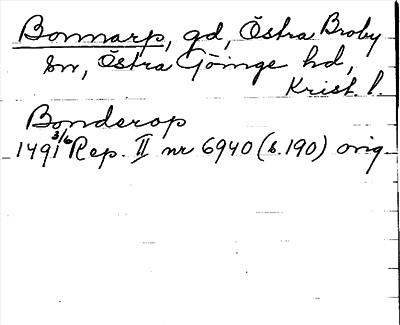 Bonnarp, gd, Östra Broby
sn, Östra Göinge hd,
Krist. l.
Bonderop
1491 3/6 Rep. II nr 6940 (s. 190) orig